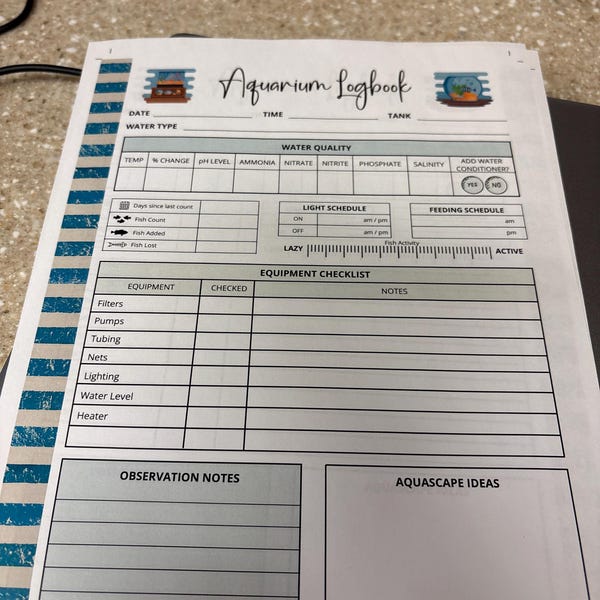 Aquarium Logbook
DATE TIME TANK
WATER TYPE
WATER QUALITY
TEMP % CHANGE pH LEVEL AMMONIA NITRATE NITRITE PHOSPHATE SALINITY ADD WATER CONDITIONER?
YES NO
Days since last count
Fish Count
Fish Added
Fish Lost
LIGHT SCHEDULE
ON am / pm
OFF am / pm
FEEDING SCHEDULE
am
pm
Fish Activity
LAZY ACTIVE
EQUIPMENT CHECKLIST
EQUIPMENT CHECKED NOTES
Filters
Pumps
Tubing
Nets
Lighting
Water Level
Heater
OBSERVATION NOTES
AQUASCAPE IDEAS